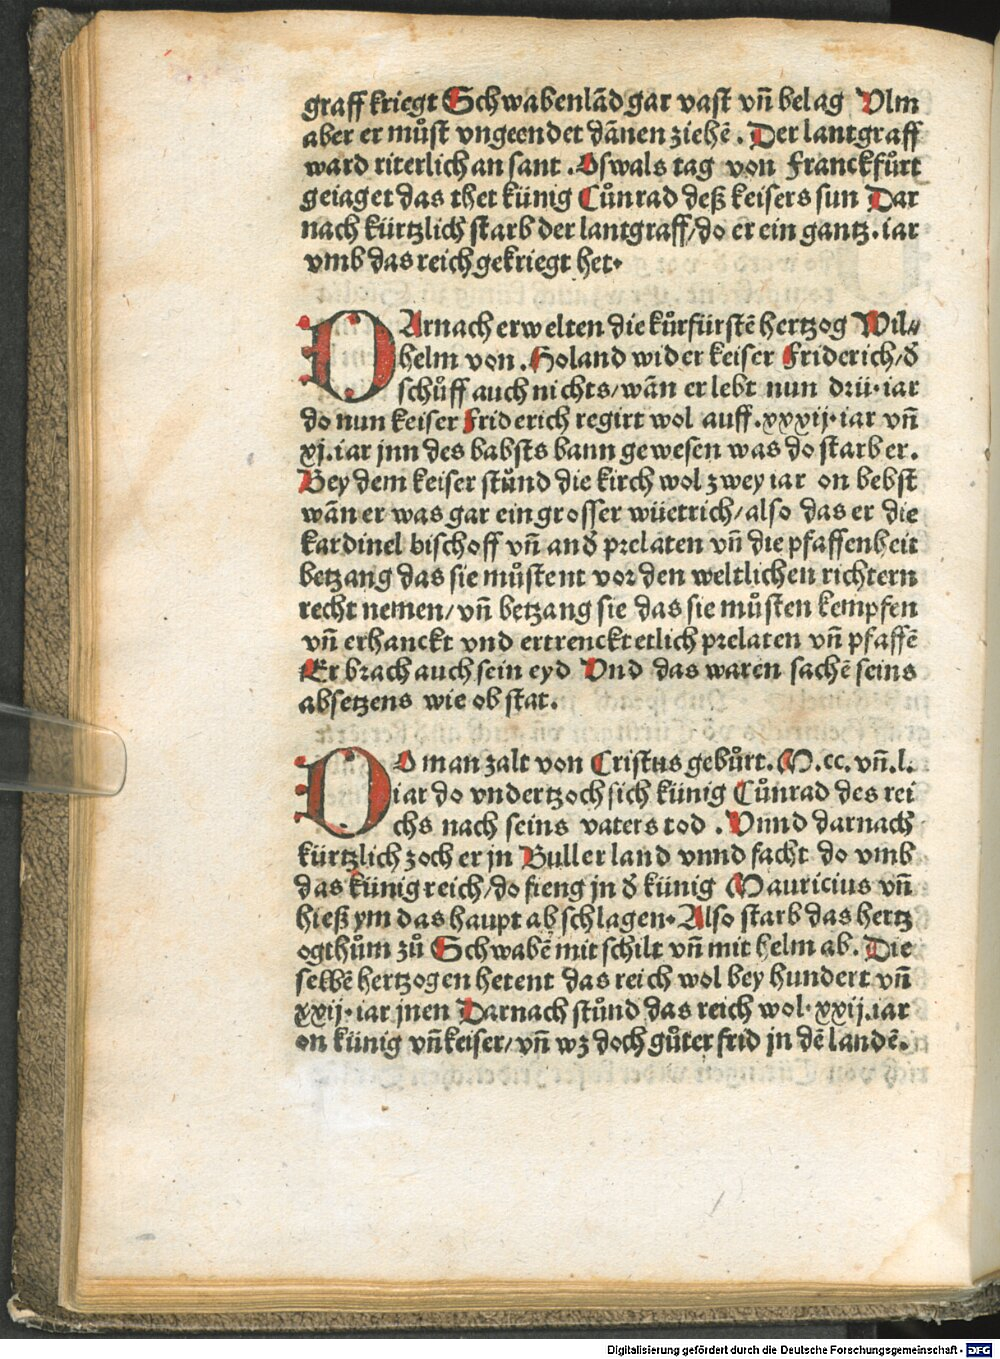 graff kriegt Schwabenlãd gar vast vñ belag Vlm
aber er můst vngeendet dãnen ziehẽ. Der lantgraff
ward riterlich an sant. Oswals tag von Franckfůrt
geiaget das thet künig Cůnrad deß keisers sun Dar
nach kürtzlich starb der lantgraff/ do er ein gantz. iar
vmb das reich gekriegt het.
DArnach erwelten die kůrfürstẽ hertzog Wil⸗
helm von. Holand wider keiser Friderich/ đ
schůff auch nichts/ wãn er lebt nun drü. iar
do nun keiser Friderich regirt wol auff. xxxij. iar vñ
xj. iar jnn des babsts bann gewesen was do starb er.
Bey dem keiser stůnd die kirch wol zwey iar on bebst
wãn er was gar ein grosser wüetrich/ also das er die
kardinel bischoff vñ anđ prelaten vñ die pfaffenheit
betzang das sie můstent vor den weltlichen richtern
recht nemen/ vñ betzang sie das sie můsten kempfen
vñ erhanckt vnd ertrenckt etlich prelaten vñ pfaffẽ
Er brach auch sein eyd Vnd das waren sachẽ seins
absetzens wie ob stat.
DO man zalt von Cristus gebůrt. M. cc. vñ. l.
iar do vndertzoch sich künig Cůnrad des rei
chs nach seins vaters tod . Vnnd darnach
kürtzlich zoch er jn Buller land vnnd facht do vmb
das künigreich/ do fieng jn đ künig Mauricius vñ
hieß ym das haupt abschlagen. Also starb das hertz
ogthům zů Schwabẽ mit schilt vñ mit helm ab. Die
selbẽ hertzogen hetent das reich wol bey hundert vñ
xxij. iar jnen Darnach stůnd das reich wol. xxij. iar
on künig vñ keiser/ vñ wz doch gůter frid jn dẽ landẽ.
Digitalisierung gefördert durch die Deutsche Forschungsgemeinschaft - DFG